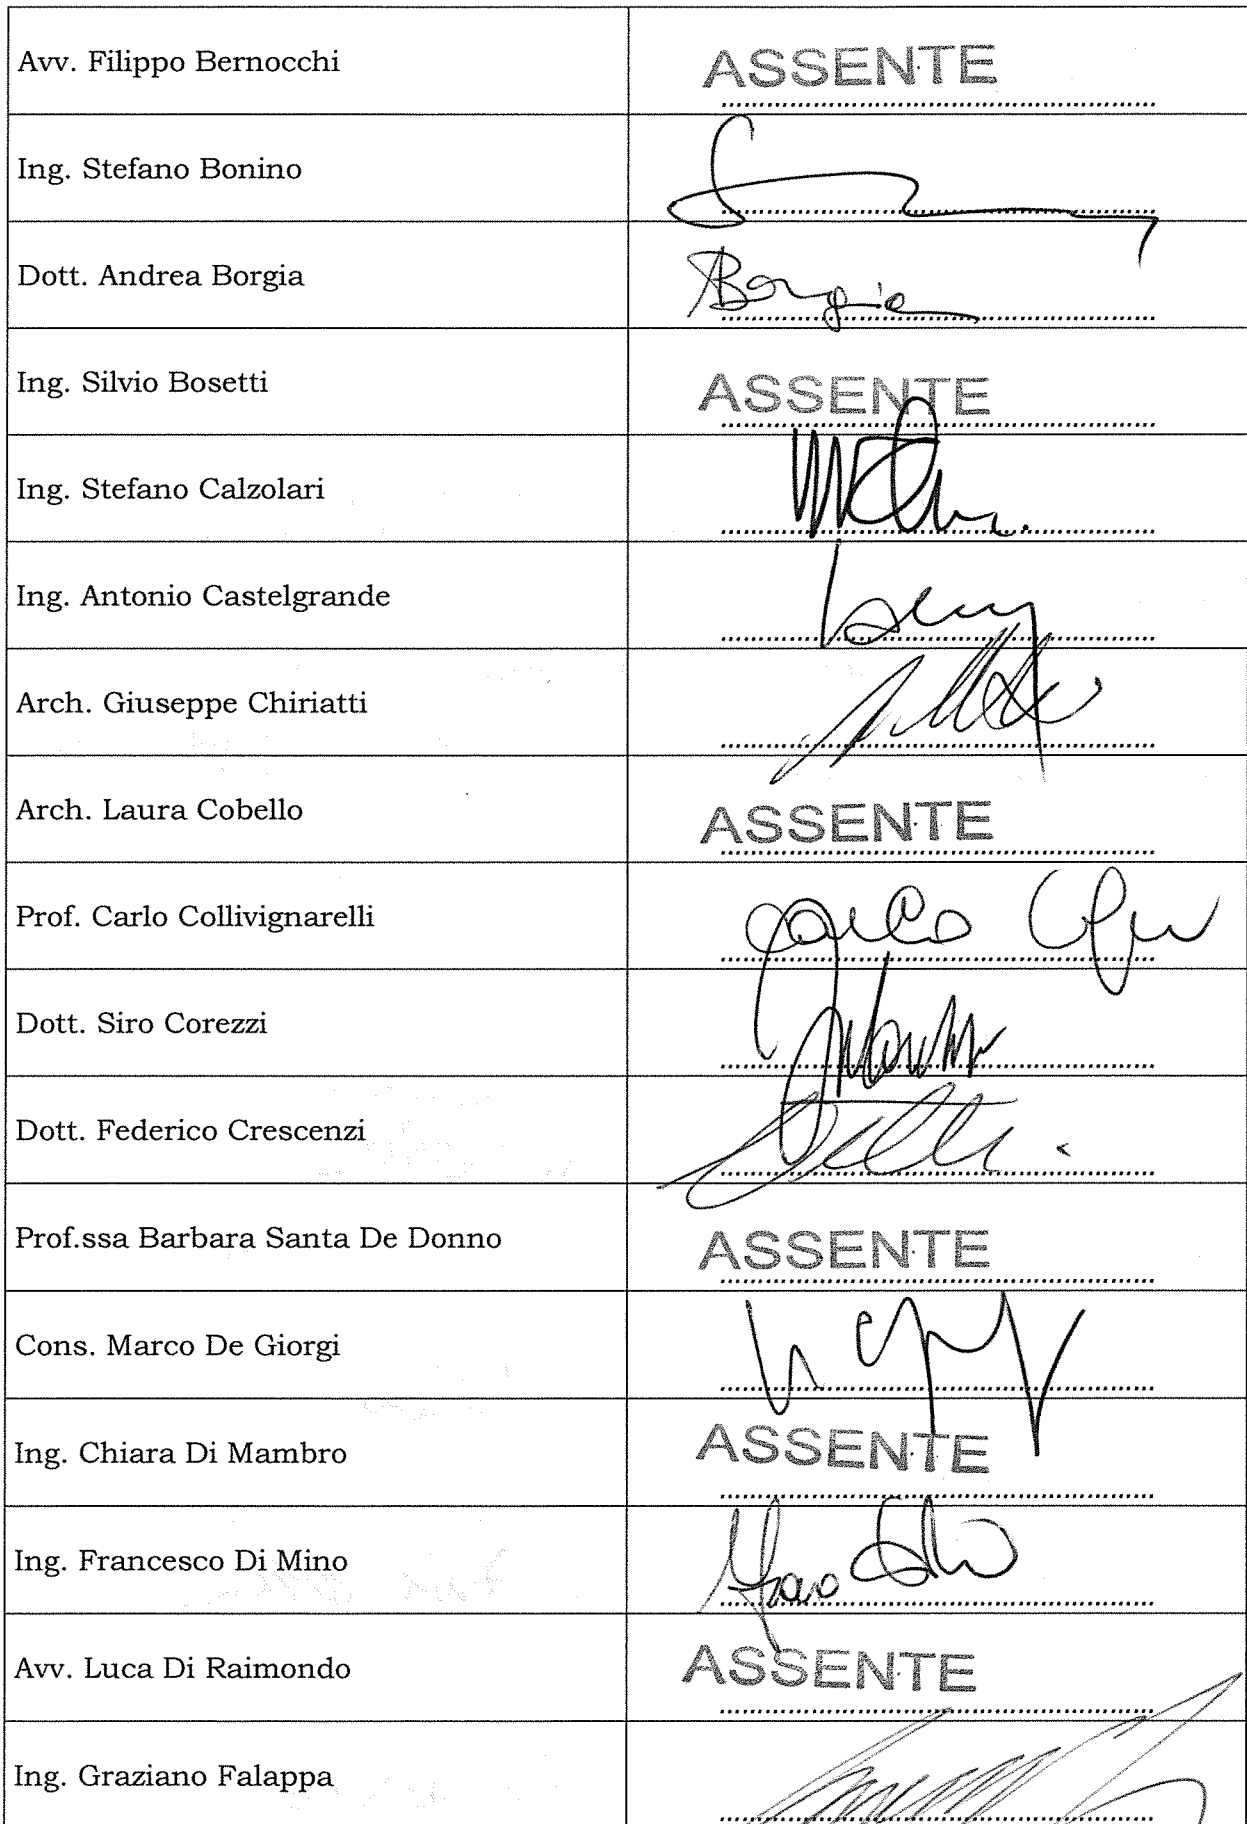 Avv. Filippo Bernocchi ASSENTE
Ing. Stefano Bonino
Dott. Andrea Borgia Borgia
Ing. Silvio Bosetti ASSENTE
Ing. Stefano Calzolari
Ing. Antonio Castelgrande
Arch. Giuseppe Chiriatti
Arch. Laura Cobello ASSENTE
Prof. Carlo Collivignarelli Carlo
Dott. Siro Corezzi
Dott. Federico Crescenzi
Prof.ssa Barbara Santa De Donno ASSENTE
Cons. Marco De Giorgi
Ing. Chiara Di Mambro ASSENTE
Ing. Francesco Di Mino
Avv. Luca Di Raimondo ASSENTE
Ing. Graziano Falappa